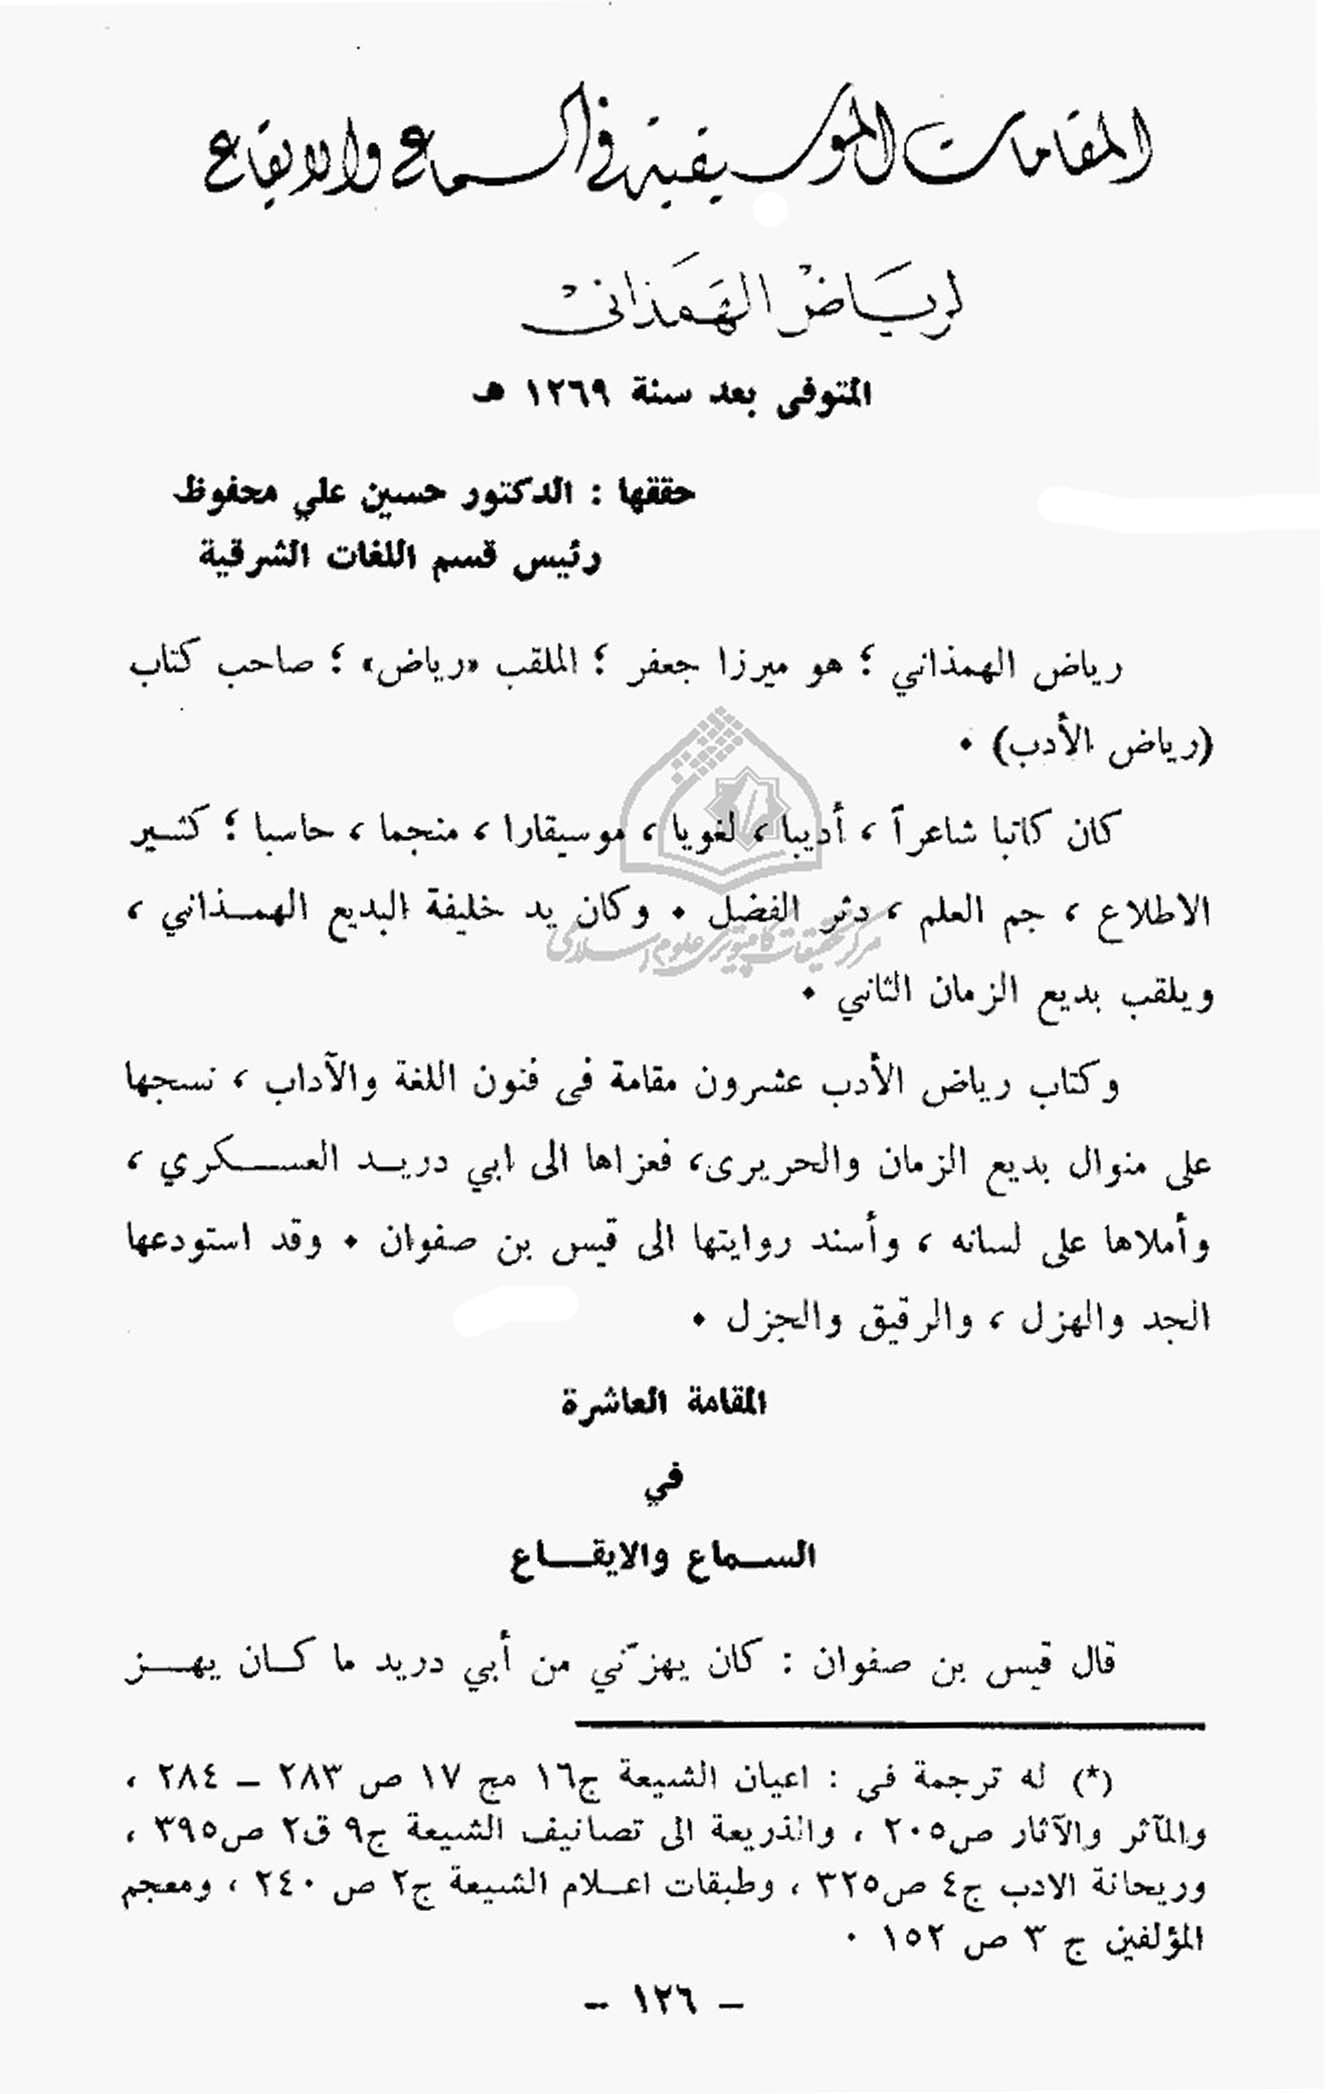 المقامات الموسيقية في السماع والايقاع
لرياض الهمذاني
المتوفى بعد سنة ١٢٦٩ هـ
حققها : الدكتور حسين علي محفوظ
رئيس قسم اللغات الشرقية
رياض الهمذاني ؛ هو ميرزا جعفر ؛ الملقب «رياض» ؛ صاحب كتاب
(رياض الأدب) ٠
كان كاتبا شاعراً ، أديبا ، لغويا ، موسيقارا ، منجما ، حاسبا ؛ كثير
الاطلاع ، جم العلم ، دثر الفضل ٠ وكان يد خليفة البديع الهمذاني ،
ويلقب بديع الزمان الثاني ٠
مركز تحقيقات كامپيوترى علوم اسلامى
وكتاب رياض الأدب عشرون مقامة فى فنون اللغة والآداب ، نسجها
على منوال بديع الزمان والحريرى، فعزاها الى ابي دريد العسكري ،
وأملاها على لسانه ، وأسند روايتها الى قيس بن صفوان ٠ وقد استودعها
الجد والهزل ، والرقيق والجزل ٠
المقامة العاشرة
في
السماع والايقاع
قال قيس بن صفوان : كان يهزّني من أبي دريد ما كان يهز
(*) له ترجمة فى : اعيان الشيعة ج١٦ مج ١٧ ص ٢٨٣ – ٢٨٤ ،
والمآثر والآثار ص٢٠٥ ، والذريعة الى تصانيف الشيعة ج٩ ق٢ ص٣٩٥ ،
وريحانة الادب ج٤ ص٣٢٥ ، وطبقات اعلام الشيعة ج٢ ص ٢٤٠ ، ومعجم
المؤلفين ج ٣ ص ١٥٢ ٠
– ١٢٦ –